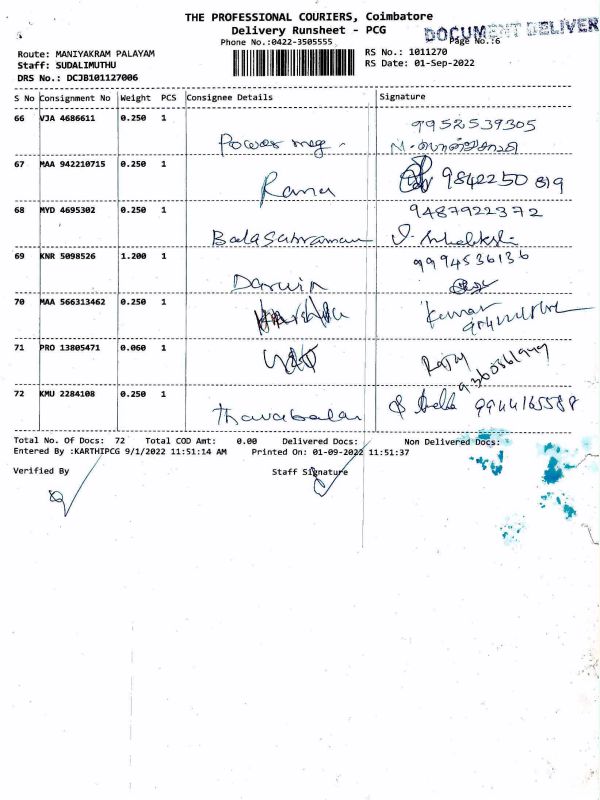 THE PROFESSIONAL COURIERS, Coimbatore
Delivery Runsheet - PCG
DOCUMENT DELIVER
Phone No.:0422-3505555
Page No.:6
Route: MANIYAKRAM PALAYAM
RS No.: 1011270
Staff: SUDALIMUTHU
RS Date: 01-Sep-2022
DRS No.: DCJB101127006
S No Consignment No Weight PCS Consignee Details Signature
66 VJA 4686611 0.250 1
9952539305
Power meg.
67 MAA 942210715 0.250 1
Rama 9842250 819
68 MYD 4695302 0.250 1
9487922372
Balasubramani
69 KNR 5098526 1.200 1
9994536136
Darwin
70 MAA 566313462 0.250 1
Kumar
71 PRO 13805471 0.060 1
Rajay
9360361949
72 KMU 2284108 0.250 1
Thavabalan 9944165588
Total No. Of Docs: 72 Total COD Amt: 0.00 Delivered Docs: Non Delivered Docs:
Entered By :KARTHIPCG 9/1/2022 11:51:14 AM Printed On: 01-09-2022 11:51:37
Verified By Staff Signature